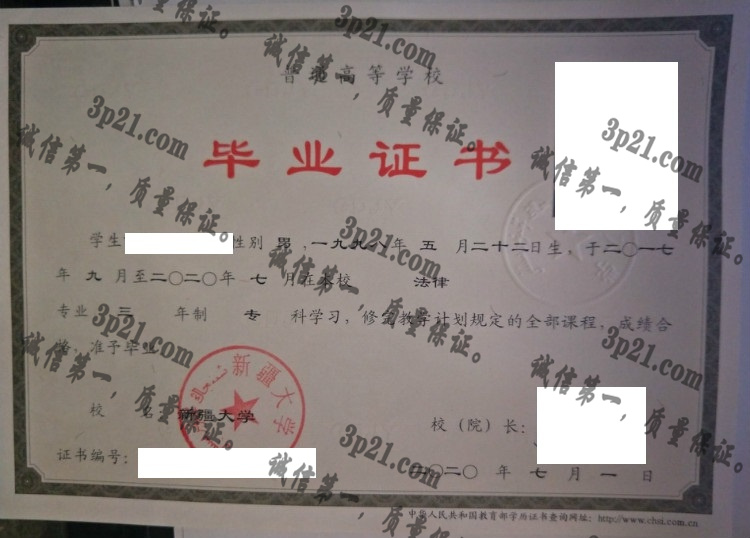 普通高等学校
毕业证书
学生 性别 男 ,一九九八年 五 月二十二日生,于二〇一七
年 九 月至二〇二〇年 七 月在本校 法律
专业 三 年制 专 科学习,修完教学计划规定的全部课程,成绩合
格,准予毕业
校 名 新疆大学
校(院)长:
证书编号:
二〇二〇 年 七 月 一 日
中华人民共和国教育部学历证书查询网址: http://www.chsi.com.cn
新疆大学
3p21.com
诚信第一,质量保证。
3p21.com
诚信第一,质量保证。
3p21.com
诚信第一,质量保证。
3p21.com
诚信第一,质量保证。
3p21.com
诚信第一,质量保证。
3p21.com
诚信第一,质量保证。
3p21.com
诚信第一,质量保证。
质量保证。